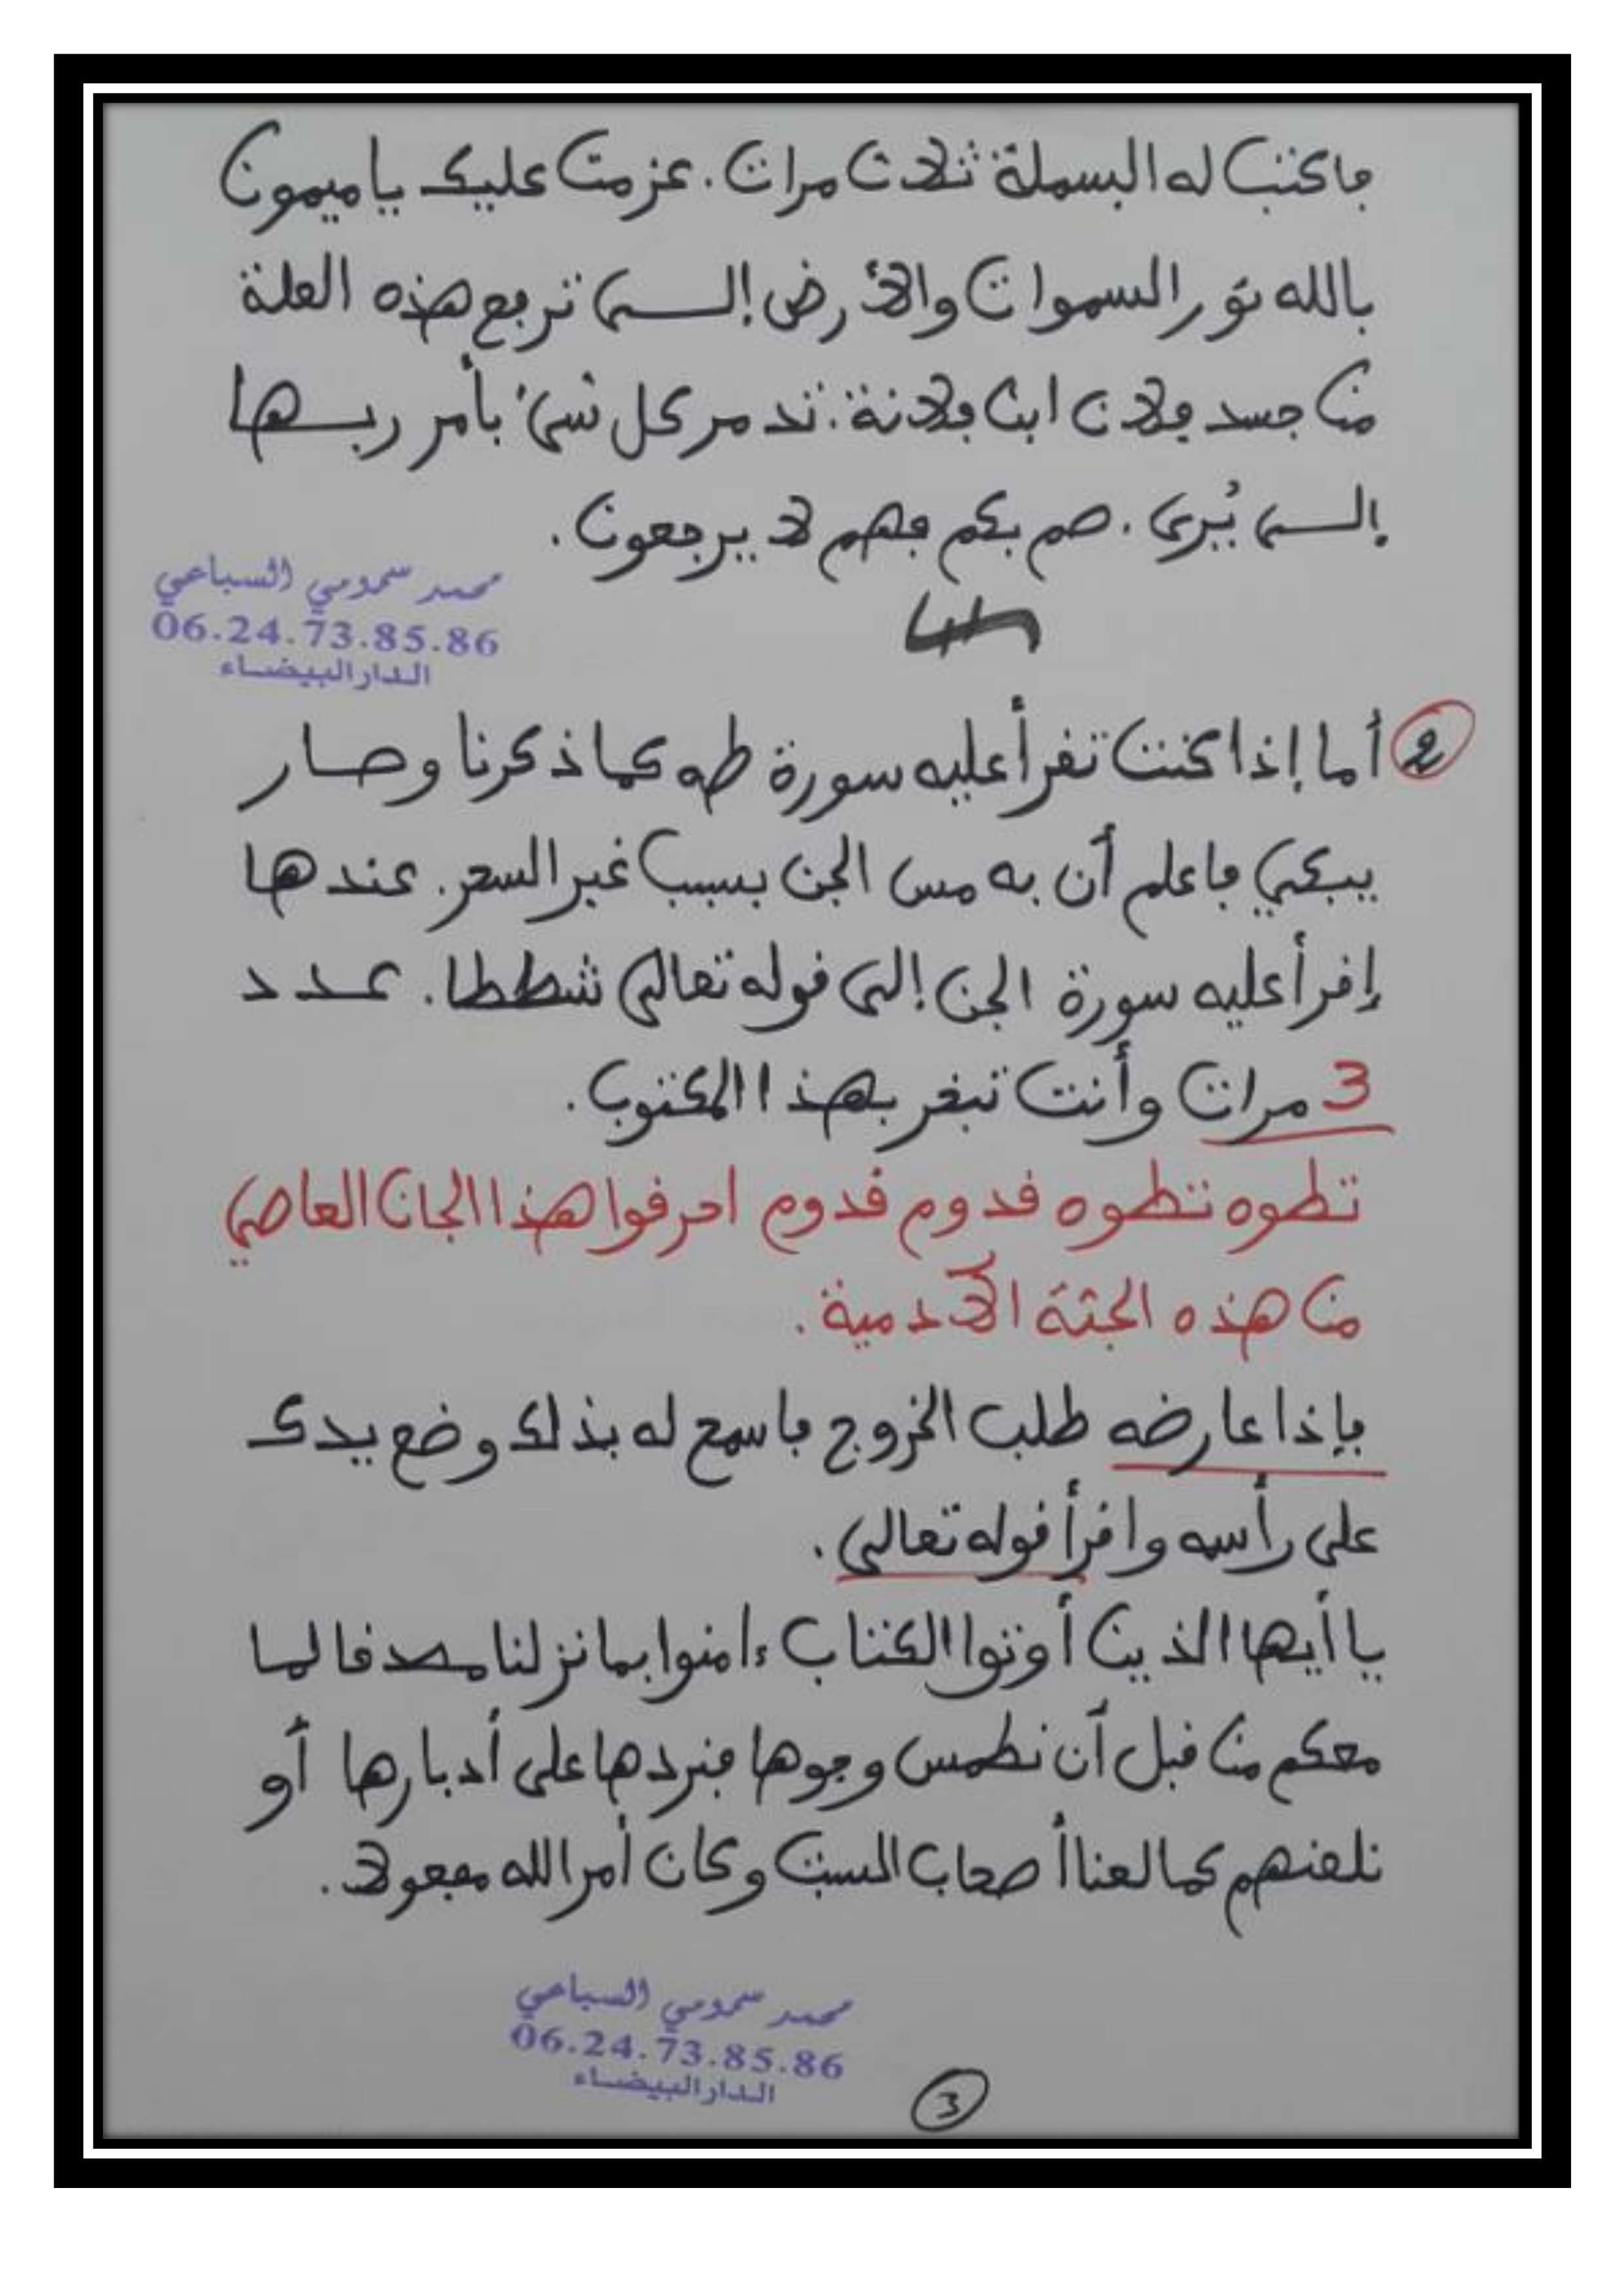 فاكتب له البسملة ثلاث مرات. عزمت عليك يا ميمون
بالله نور السموات والأرض إلــى ترفع هذه العلة
من جسد فلان ابن فلانة. تدمر كل شىء بأمر ربــها
إلــى يُرى. صم بكم فهم لا يرجعون.
محمد سمومي السباعي
06.24.73.85.86
الدار البيضاء
2 أما إذا كنت تقرأ عليه سورة طه كما ذكرنا وصــار
يبكي فاعلم أن به مس الجن بسبب غير السحر. عندها
إقرأ عليه سورة الجن إلى قوله تعالى شططا. عــدد
3 مرات وأنت تبخر بهذا المكتوب.
تطوه تطوه قدوم قدوم احرقوا هذا الجان العاصي
من هذه الجثة الآدمية.
فإذا عارضه طلب الخروج فاسمع له بذلك وضع يدك
على رأسه واقرأ قوله تعالى.
يا أيها الذين أوتوا الكتاب ءامنوا بما نزلنا مصدقا لما
معكم من قبل أن نطمس وجوها فنردها على أدبارها أو
نلعنهم كما لعنا أصحاب السبت وكان أمر الله مفعولا.
محمد سمومي السباعي
06.24.73.85.86
الدار البيضاء
3